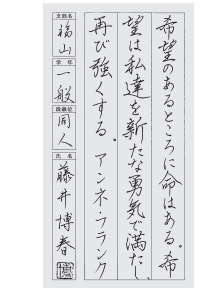 希望のあるところに命はある。希
望は私達を新たな勇気で満たし、
再び強くする。アンネ・フランク
支部名 福山 学年 一般 段級位 同人 氏名 藤井博春